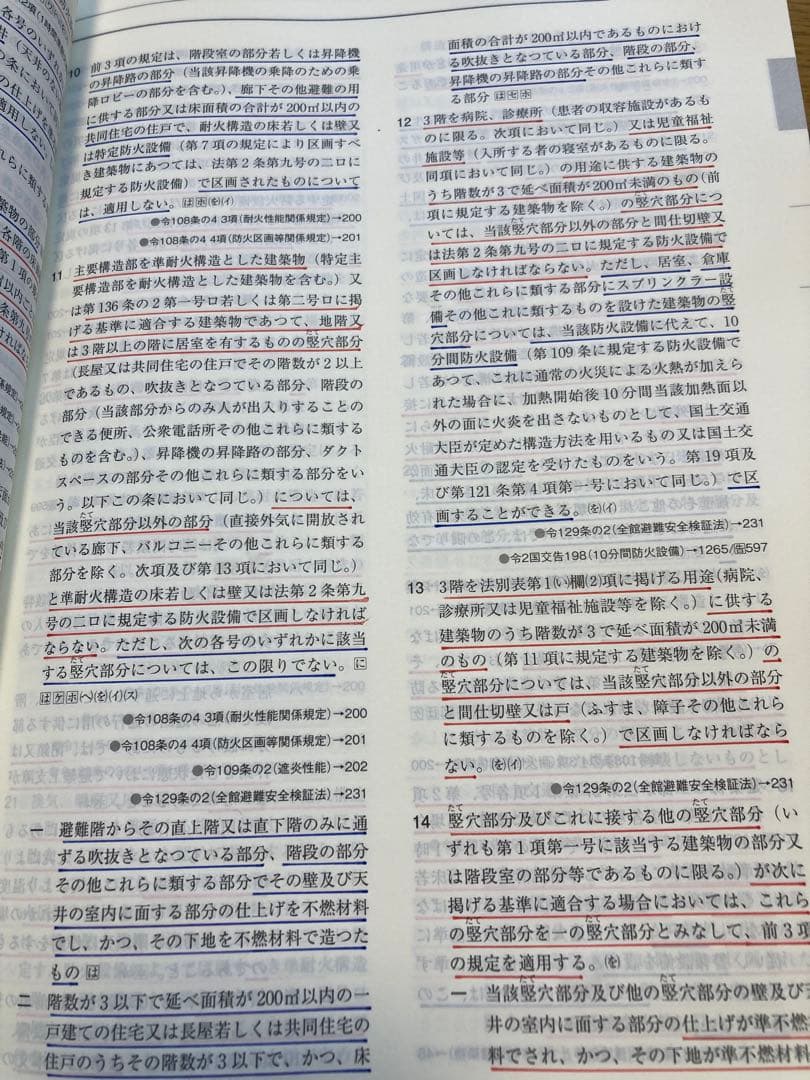 10 前3項の規定は、階段室の部分若しくは昇降機
の昇降路の部分（当該昇降機の乗降のための乗
降ロビーの部分を含む。）、廊下その他避難の用
に供する部分又は床面積の合計が200㎡以内の
共同住宅の住戸で、耐火構造の床若しくは壁又
は特定防火設備（第7項の規定により区画すべ
き建築物にあつては、法第2条第九号の二ロに
規定する防火設備）で区画されたものについて
は、適用しない。
●令108条の4 3項（耐火性能関係規定）→200
●令108条の4 4項（防火区画等関係規定）→201
11 主要構造部を準耐火構造とした建築物（特定主
要構造部を耐火構造とした建築物を含む。）又
は第136条の2第一号ロ若しくは第二号ロに掲
げる基準に適合する建築物であつて、地階又
は3階以上の階に居室を有するものの竪穴部分
（長屋又は共同住宅の住戸でその階数が2以上
であるもの、吹抜きとなつている部分、階段の
部分（当該部分からのみ人が出入りすることの
できる便所、公衆電話所その他これらに類する
ものを含む。）、昇降機の昇降路の部分、ダクト
スペースの部分その他これらに類する部分をい
う。以下この条において同じ。）については、
当該竪穴部分以外の部分（直接外気に開放され
ている廊下、バルコニーその他これらに類する
部分を除く。次項及び第13項において同じ。）
と準耐火構造の床若しくは壁又は法第2条第九
号の二ロに規定する防火設備で区画しなければ
ならない。ただし、次の各号のいずれかに該当
する竪穴部分については、この限りでない。
●令108条の4 3項（耐火性能関係規定）→200
●令108条の4 4項（防火区画等関係規定）→201
●令109条の2（遮炎性能）→202
●令129条の2（全館避難安全検証法）→231
一 避難階からその直上階又は直下階のみに通
ずる吹抜きとなつている部分、階段の部分
その他これらに類する部分でその壁及び天
井の室内に面する部分の仕上げを不燃材料
でし、かつ、その下地を不燃材料で造つた
もの
二 階数が3以下で延べ面積が200㎡以内の一
戸建ての住宅又は長屋若しくは共同住宅の
住戸のうちその階数が3以下で、かつ、床
面積の合計が200㎡以内であるものにおけ
る吹抜きとなつている部分、階段の部分、
昇降機の昇降路の部分その他これらに類す
る部分
12 3階を病院、診療所（患者の収容施設があるも
のに限る。次項において同じ。）又は児童福祉
施設等（入所する者の寝室があるものに限る。
同項において同じ。）の用途に供する建築物の
うち階数が3で延べ面積が200㎡未満のもの（前
項に規定する建築物を除く。）の竪穴部分につ
いては、当該竪穴部分以外の部分と間仕切壁又
は法第2条第九号の二ロに規定する防火設備で
区画しなければならない。ただし、居室、倉庫
その他これらに類する部分にスプリンクラー設
備その他これに類するものを設けた建築物の竪
穴部分については、当該防火設備に代えて、10
分間防火設備（第109条に規定する防火設備で
あつて、これに通常の火災による火熱が加えら
れた場合に、加熱開始後10分間当該加熱面以
外の面に火炎を出さないものとして、国土交通
大臣が定めた構造方法を用いるもの又は国土交
通大臣の認定を受けたものをいう。第19項及
び第121条第4項第一号において同じ。）で区
画することができる。
●令129条の2（全館避難安全検証法）→231
●令2国交告198（10分間防火設備）→1265/告597
13 3階を法別表第1(い)欄(2)項に掲げる用途（病院、
診療所又は児童福祉施設等を除く。）に供する
建築物のうち階数が3で延べ面積が200㎡未満
のもの（第11項に規定する建築物を除く。）の
竪穴部分については、当該竪穴部分以外の部分
と間仕切壁又は戸（ふすま、障子その他これら
に類するものを除く。）で区画しなければなら
ない。
●令129条の2（全館避難安全検証法）→231
14 竪穴部分及びこれに接する他の竪穴部分（い
ずれも第1項第一号に該当する建築物の部分又
は階段室の部分等であるものに限る。）が次に
掲げる基準に適合する場合においては、これら
の竪穴部分を一の竪穴部分とみなして、前3項
の規定を適用する。
一 当該竪穴部分及び他の竪穴部分の壁及び天
井の室内に面する部分の仕上げが準不燃
料でされ、かつ、その下地が準不燃材料